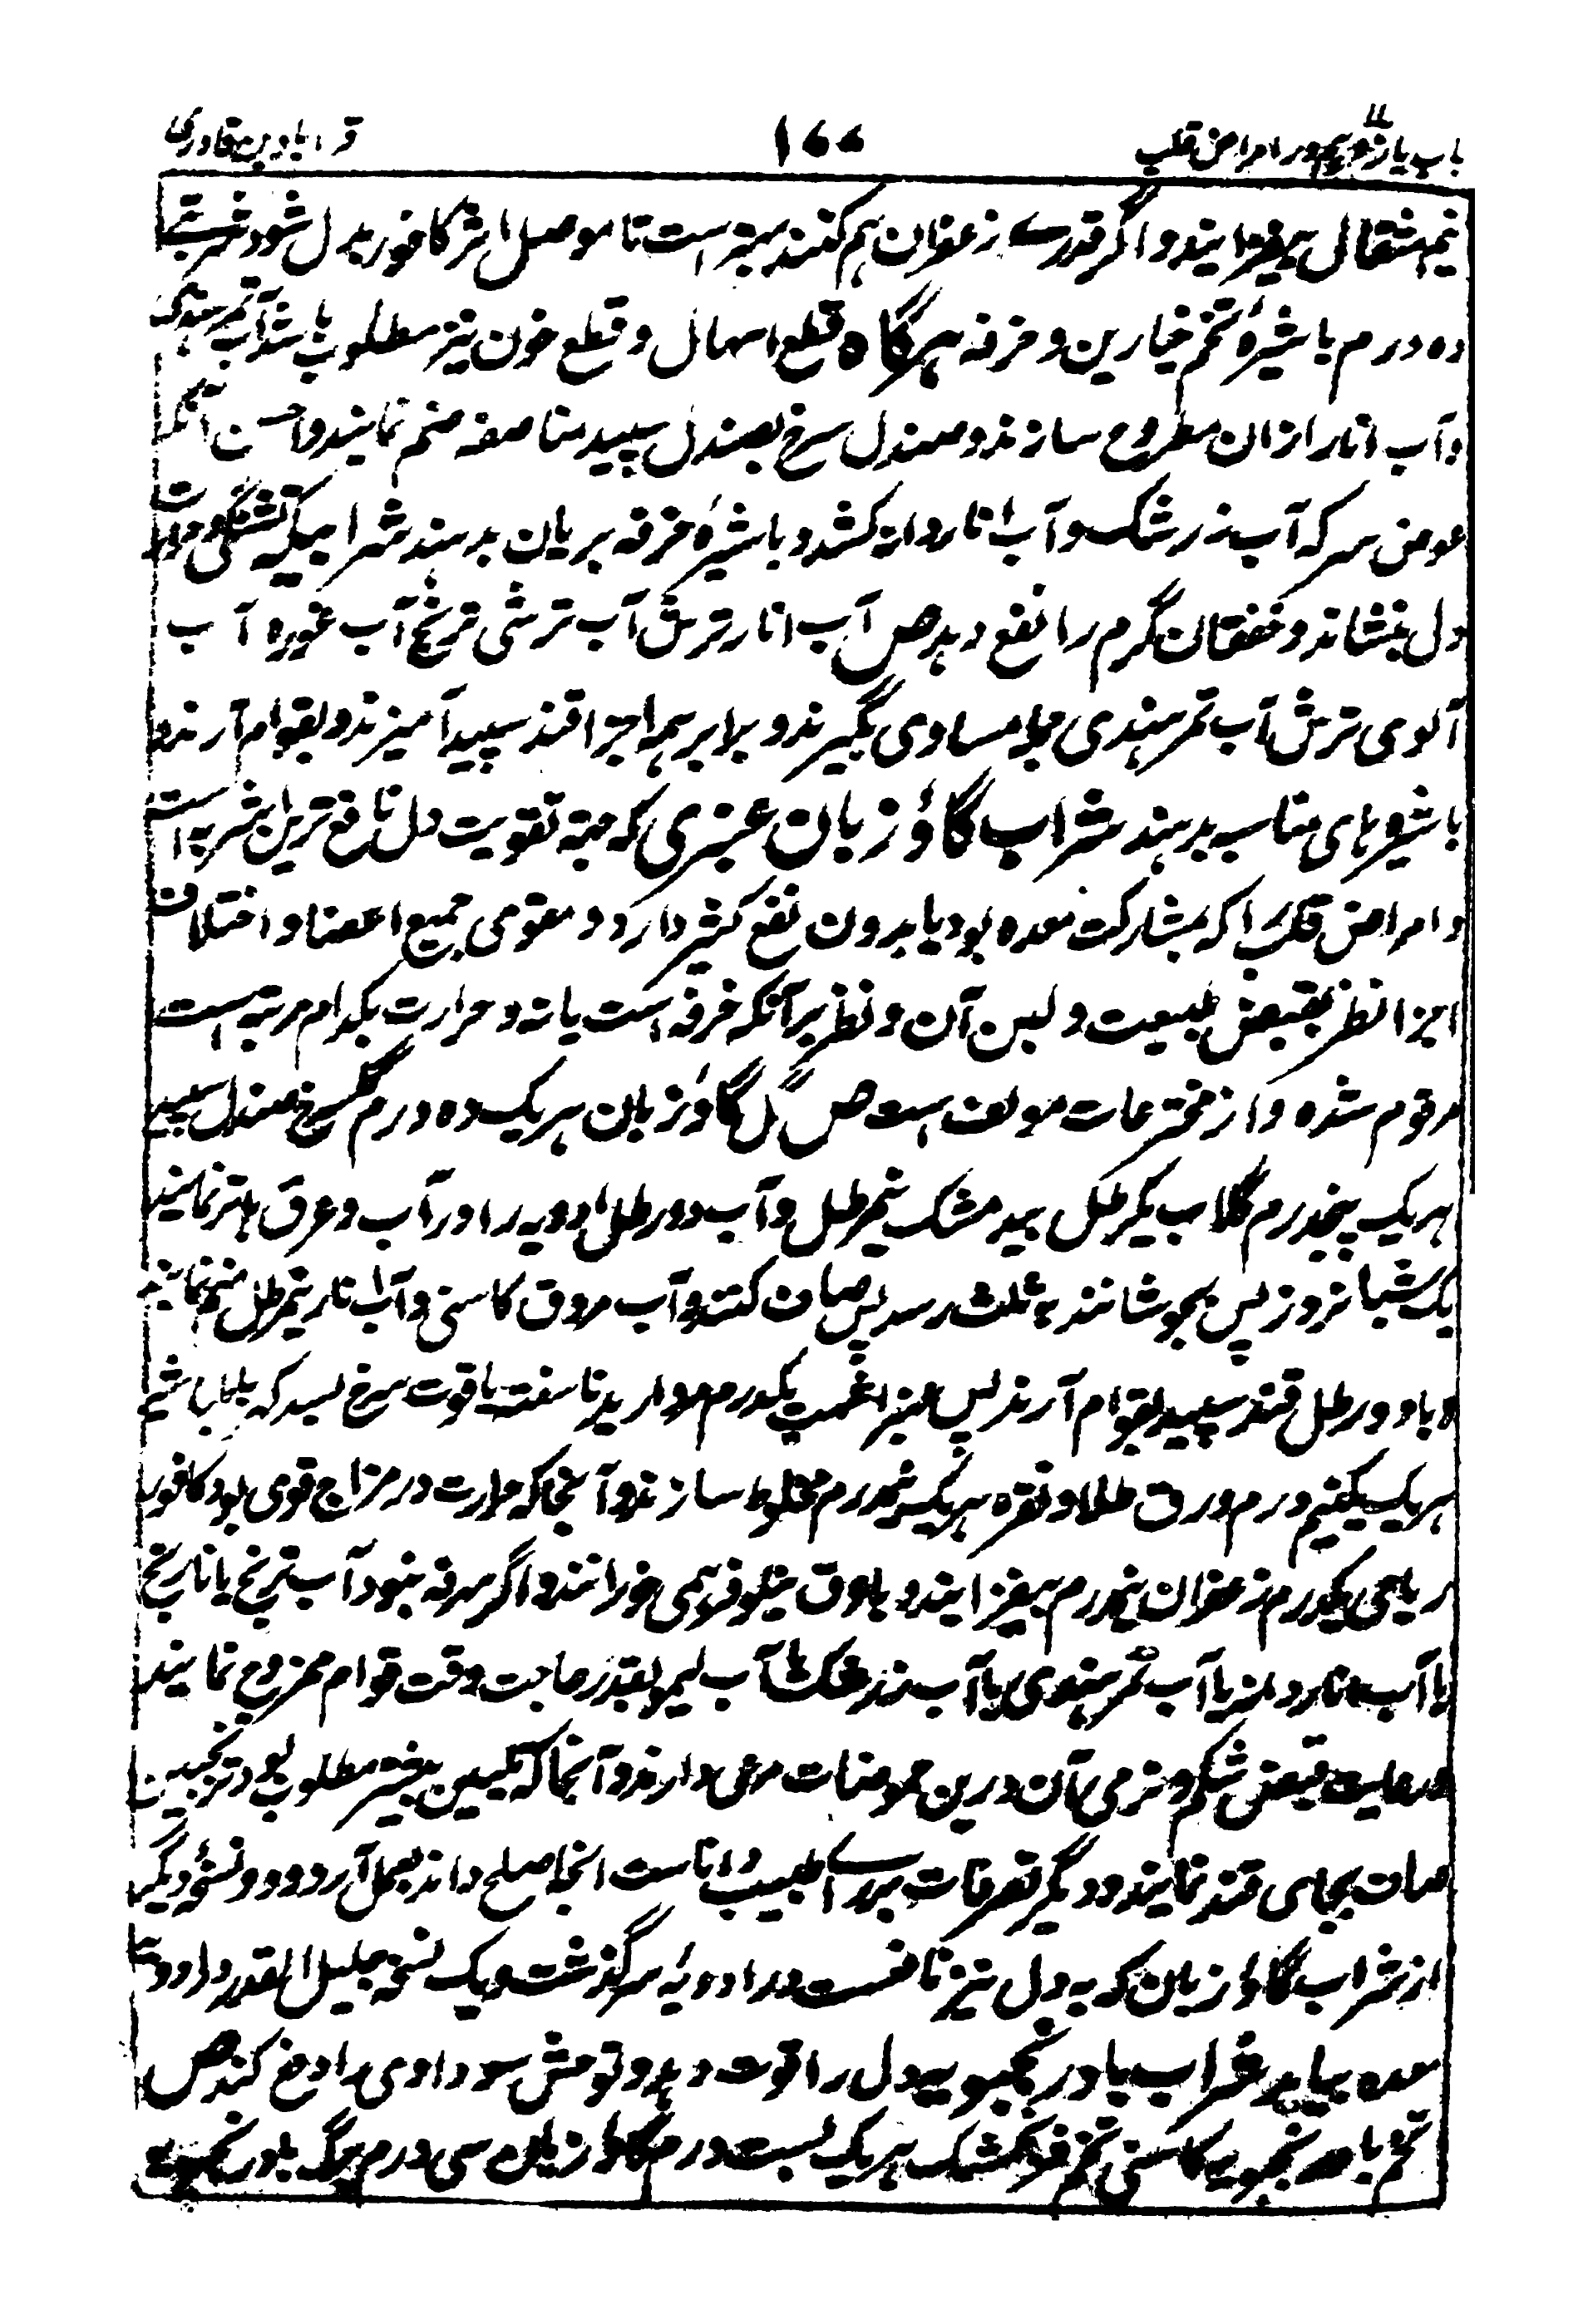 باب یازدهم در امراض قلب
۱۷۷
قرابادین قادری
نیم مثقال بیفزایند و اگر قدرے زعفران هم کنند بهتر است تا موصل اثر کافور بدل شود شربتے
ده درم با شیرهٔ تخم خیارین و خرفه هرگاه قطع اسهال و قطع خون نیز مطلوب باشد آب تمر هندی
و آب انار ازان مطروح سازند و صندل سرخ بصندل سپید مناصفه ضم نمایند و احسن آنکه
عوض سرکه آب زرشک و آب انار دانه کشد و با شیرهٔ خرفه بریان بدهند شرابیکه تشنگی و حرارت
دل بنشاند و خفقان گرم را نفع دهد ص آب انار ترش آب ترشی ترنج آب غوره آب
آلوی ترش آب تمر هندی جمله مساوی بگیرند و برابر همه اجزا قند سپید آمیزند و بقوام آرند و
با شیرهای مناسب بدهند شراب گاؤزبان عنبری که جهة تقویت دل نافع ترین اشربه است
و امراض قلب را که بمشارکت معده بود یا بدون نفع کثیر دارد و مقوی جمیع اعضا و اختلاف
اجزا نظر بقبض طبیعت و لین آن و نظر بر آنکه خرفه است یا نه و حرارت بکدام مرتبه است
مرقوم شده و از مخترعات مولف است ص گل گاؤزبان هر یک ده درم گل سرخ صندل سپید
هر یک پنجدرم گلاب یکرطل بید مشک نیم رطل و آب دو رطل ادویه را در آب و عرق ها تر نمایند
یک شبانروز پس بجوشانند به ثلث رسد پس صاف کنند و آب مروق کاسنی و آب انار نیم رطل ضم نمایند
و با دو رطل قند سپید بقوام آرند پس عنبر اشهب یکدرم مروارید ناسفته یاقوت سرخ بسد کهربا یشم
هر یک یکنیم درم ورق طلا و نقره هر یک نیمدرم مخلوط سازند و آنجا که حرارت در مزاج قوی بود کافور
ریاحی یکدرم زعفران نیمدرم بیفزایند و با عرق نیلوفر همی خورانند و اگر سرفه نبود آب ترنج یا نارنج
یا آب انار دانه یا آب تمر هندی یا آب زرشک یا آب لیمو بقدر حاجت وقت قوام ممزوج نمایند
و رعایت قبض شکم و نرمی آن درین حموضات مرعی دارند و آنجا که تلیین بیشتر مطلوب بود ترنجبین
صاف بجای قند نمایند و دیگر تصرفات براے طبیب داناست آنچه اصلح داند بعمل آرد و دو نسخهٔ دیگر
از شراب گاوزبان که به دل نیز نافعست در ادویهٔ سر گذشت و یک نسخه جلیل القدر در ادویه
معده بیاید شراب بادرنجبویه دل را قوت دهد و توحش سوداوی را دفع کند ص
تخم بادرنجبویه کاسنی تخم فرنجمشک هر یک بست درم گاوزبان سی درم برگ بادرنجبویه